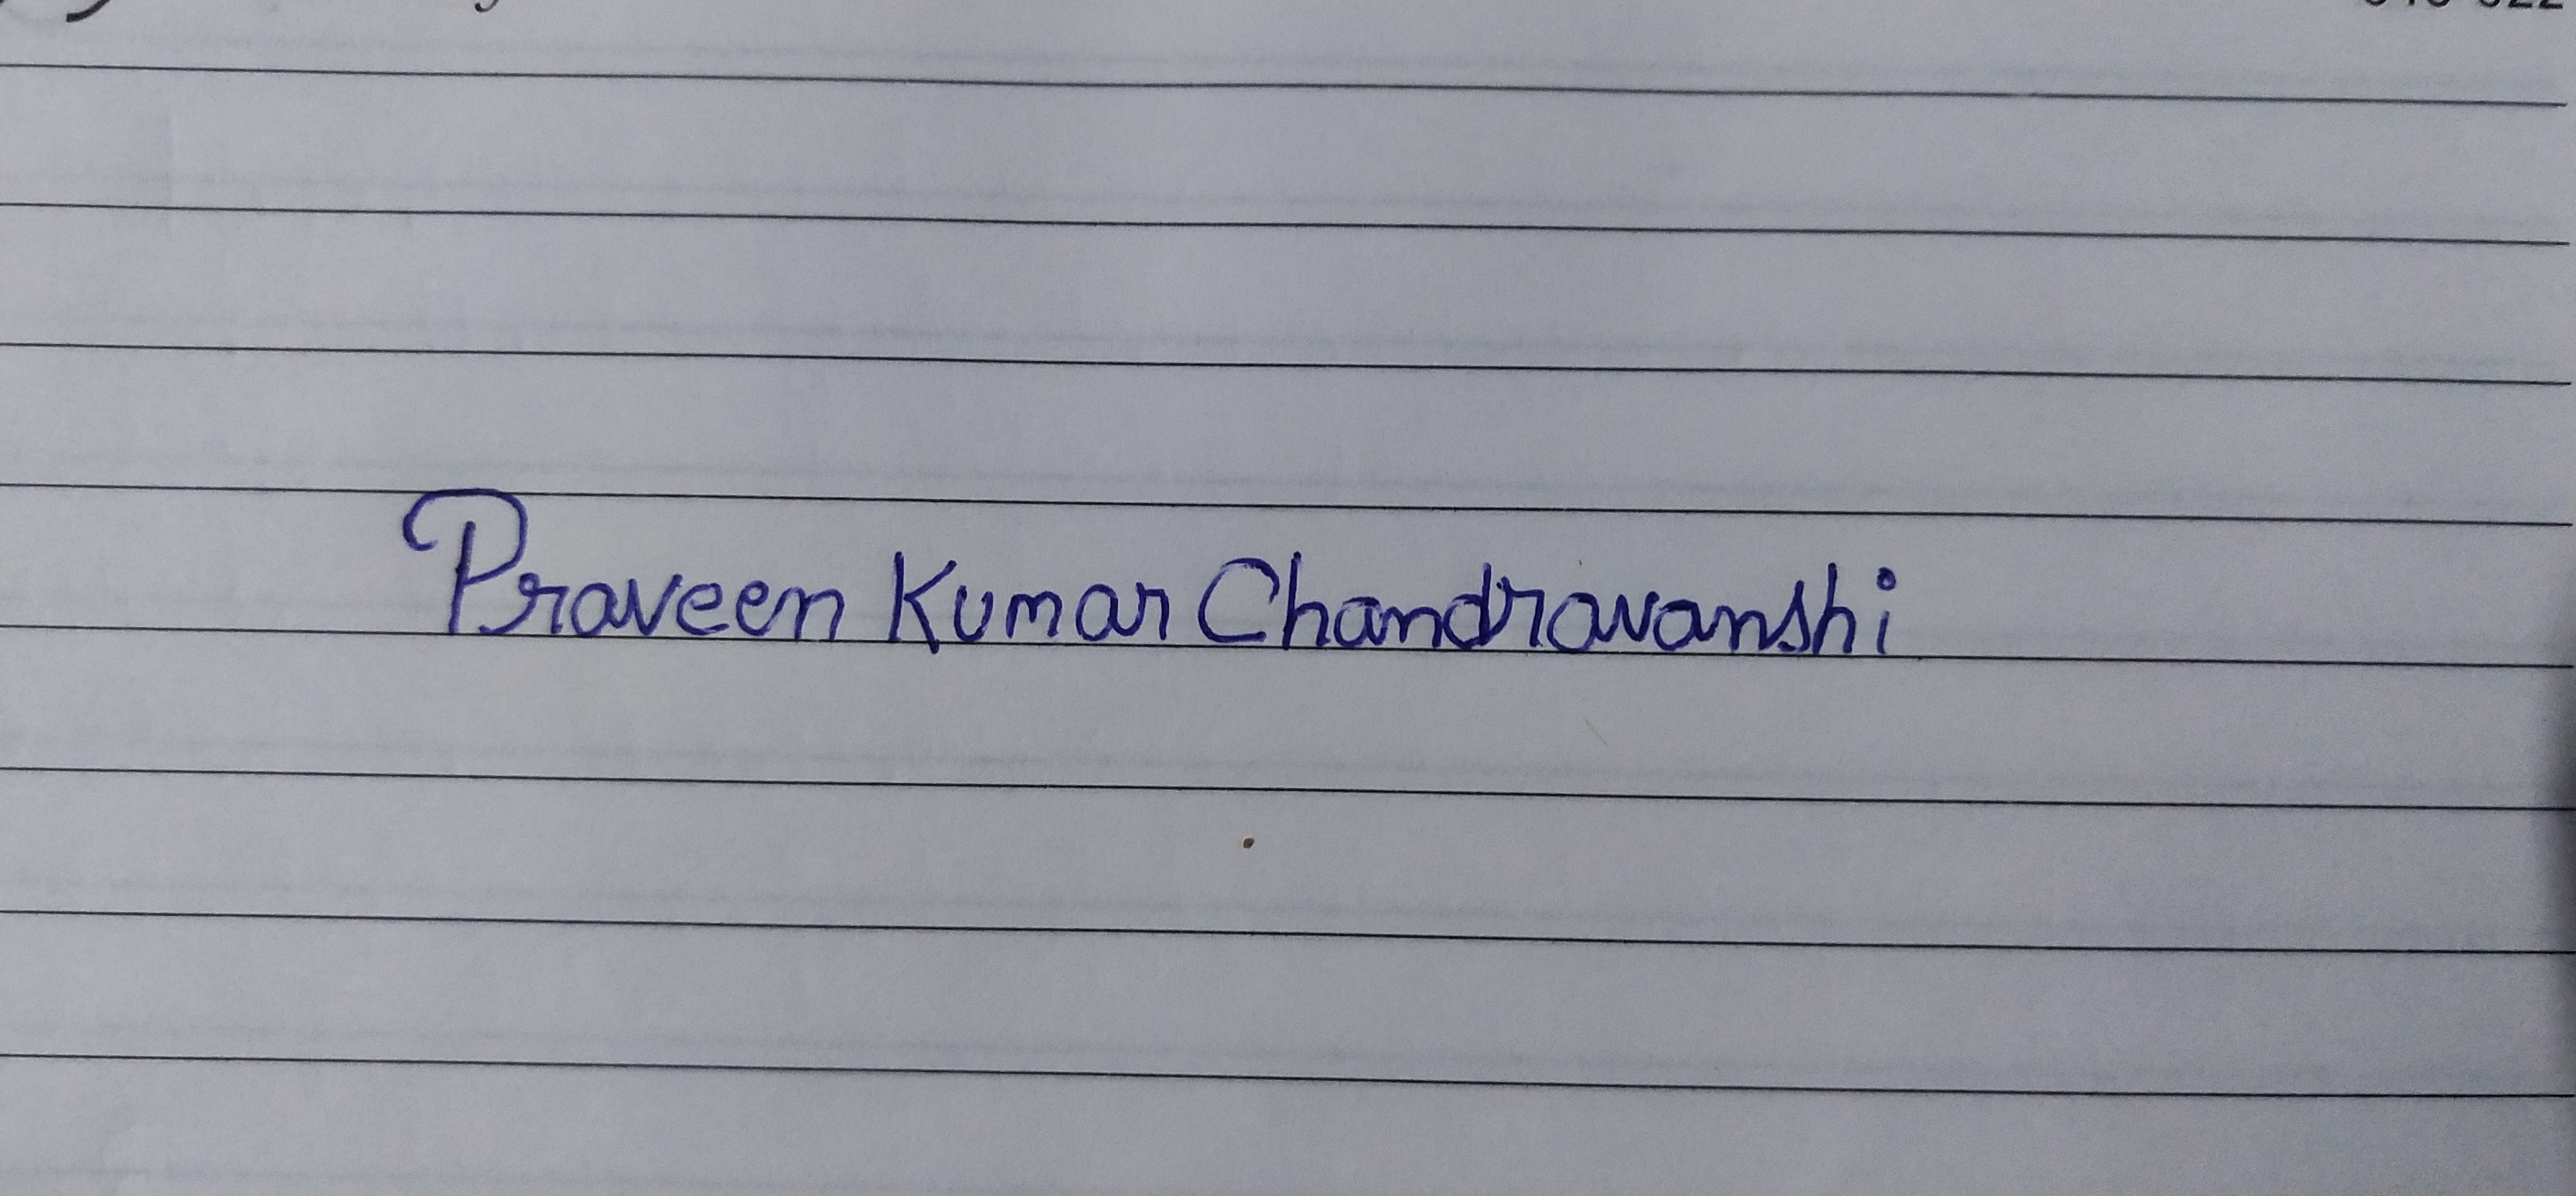 Praveen Kumar Chandravanshi